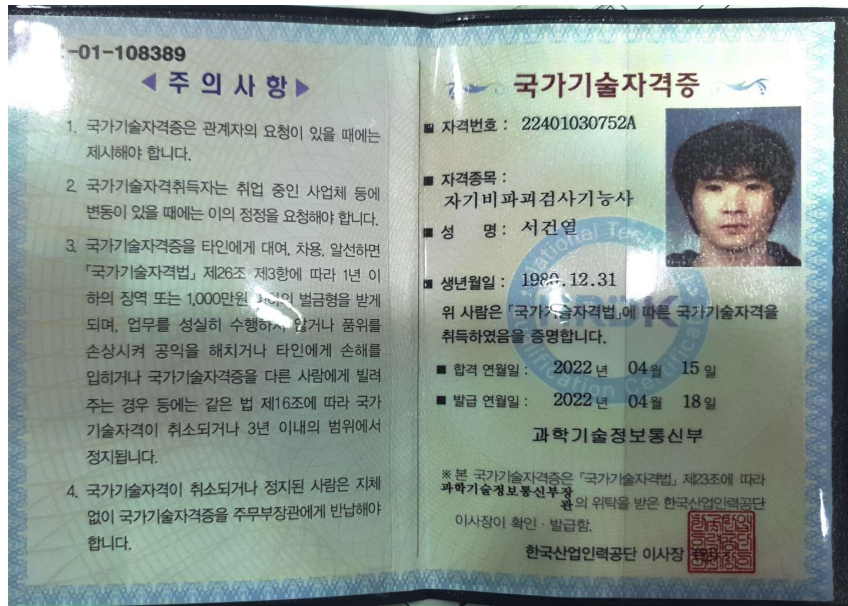 -01-108389
◀ 주 의 사 항 ▶
1. 국가기술자격증은 관계자의 요청이 있을 때에는
제시해야 합니다.
2. 국가기술자격취득자는 취업 중인 사업체 등에
변동이 있을 때에는 이의 정정을 요청해야 합니다.
3. 국가기술자격증을 타인에게 대여, 차용, 알선하면
「국가기술자격법」 제26조 제3항에 따라 1년 이
하의 징역 또는 1,000만원 이하의 벌금형을 받게
되며, 업무를 성실히 수행하지 않거나 품위를
손상시켜 공익을 해치거나 타인에게 손해를
입히거나 국가기술자격증을 다른 사람에게 빌려
주는 경우 등에는 같은 법 제16조에 따라 국가
기술자격이 취소되거나 3년 이내의 범위에서
정지됩니다.
4. 국가기술자격이 취소되거나 정지된 사람은 지체
없이 국가기술자격증을 주무부장관에게 반납해야
합니다.
국가기술자격증
■ 자격번호 : 22401030752A
■ 자격종목 :
자기비파괴검사기능사
■ 성 명 : 서건열
■ 생년월일 : 1980.12.31
위 사람은 「국가기술자격법」에 따른 국가기술자격을
취득하였음을 증명합니다.
■ 합격 연월일 : 2022 년 04 월 15 일
■ 발급 연월일 : 2022 년 04 월 18 일
과학기술정보통신부
※ 본 국가기술자격증은 「국가기술자격법」 제23조에 따라
과학기술정보통신부장
관의 위탁을 받은 한국산업인력공단
이사장이 확인 · 발급함.
한국산업인력공단 이사장